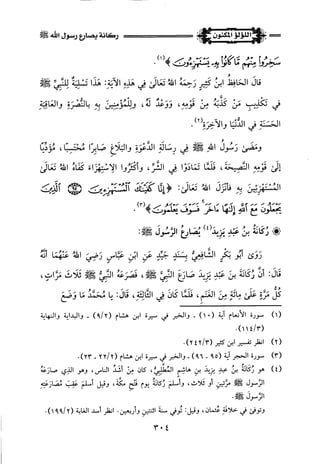 اللؤلؤ المكنون
ركانة يصارع رسول الله ﷺ
سَخِرُوا مِنْهُم مَّا كَانُوا بِهِ يَسْتَهْزِءُونَ ﴾(١).
قَالَ الحَافِظُ ابْنُ كَثِيرٍ رَحِمَهُ اللهُ تَعَالَى فِي هَذِهِ الآيَةِ: هَذَا تَسْلِيَةٌ لِلنَّبِيِّ ﷺ
فِي تَكْذِيبِ مَنْ كَذَّبَهُ مِنْ قَوْمِهِ، وَوَعْدٌ لَهُ، وَلِلْمُؤْمِنِينَ بِهِ بِالنُّصْرَةِ وَالعَاقِبَةِ
الحَسَنَةِ فِي الدُّنْيَا وَالآخِرَةِ(٢).
وَمَضَى رَسُولُ اللهِ ﷺ فِي رِسَالَةِ الدَّعْوَةِ وَالبَلَاغِ صَابِرًا مُحْتَسِبًا، مُؤَدِّيًا
إِلَى قَوْمِهِ النَّصِيحَةَ، فَلَمَّا تَمَادَوْا فِي الشَّرِّ، وَأَكْثَرُوا الِاسْتِهْزَاءَ كَفَاهُ اللهُ تَعَالَى
المُسْتَهْزِئِينَ بِهِ فَأَنْزَلَ اللهُ تَعَالَى: ﴿ إِنَّا كَفَيْنَاكَ الْمُسْتَهْزِءِينَ ۝٩٥ الَّذِينَ
يَجْعَلُونَ مَعَ اللَّهِ إِلَٰهًا ءَاخَرَ ۚ فَسَوْفَ يَعْلَمُونَ ﴾(٣).
رُكَانَةُ بنُ عَبْدِ يَزِيدَ(٤) يُصَارِعُ الرَّسُولَ ﷺ:
رَوَى أَبُو بَكْرٍ الشَّافِعِيُّ بِسَنَدٍ جَيِّدٍ عَنِ ابْنِ عَبَّاسٍ رَضِيَ اللهُ عَنْهُمَا أَنَّهُ
قَالَ: أَنَّ رُكَانَةَ بنَ عَبْدِ يَزِيدَ صَارَعَ النَّبِيَّ ﷺ، فَصَرَعَهُ النَّبِيُّ ﷺ ثَلَاثَ مَرَّاتٍ،
كُلُّ مَرَّةٍ عَلَى مِائَةٍ مِنَ الغَنَمِ، فَلَمَّا كَانَ فِي الثَّالِثَةِ، قَالَ: يَا مُحَمَّدُ مَا وَضَعَ
(١) سورة الأنعام آية (١٠) - والخبر في سيرة ابن هشام (٩/٢) - والبداية والنهاية
(١١٤/٣).
(٢) انظر تفسير ابن كثير (٢٤٢/٣).
(٣) سورة الحجر آية (٩٥ - ٩٦) - والخبر في سيرة ابن هشام (٢٢/٢ - ٢٣).
(٤) هو ركانة بن عبد يزيد بن هاشم المُطَّلِبي، كان من أشد الناس، وهو الذي صارعه
الرسول ﷺ مرتين أو ثلاث، وأسلم ركانة يوم فتح مكة، وقيل أسلم عقب مصارعته
الرسول ﷺ.
وتوفي في خلافة عثمان، وقيل: تُوفي سنة اثنتين وأربعين. انظر أسد الغابة (١٩٩/٢).
٣٠٤